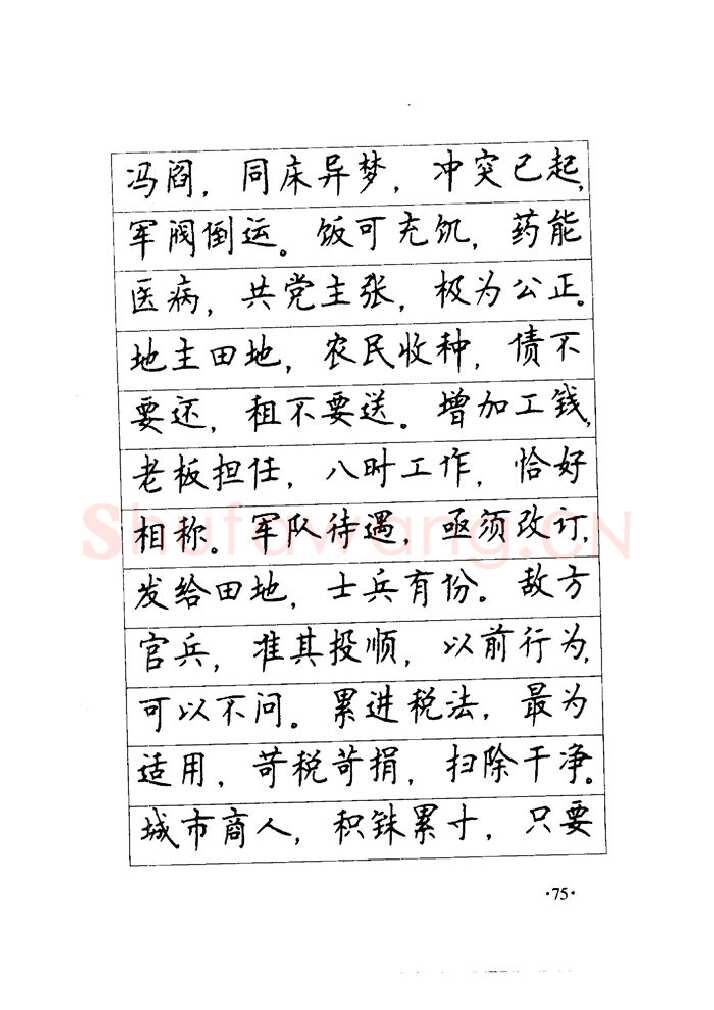 冯阎，同床异梦，冲突已起，
军阀倒运。饭可充饥，药能
医病，共党主张，极为公正。
地主田地，农民收种，债不
要还，租不要送。增加工钱，
老板担任，八时工作，恰好
相称。军队待遇，亟须改订，
发给田地，士兵有份。敌方
官兵，准其投顺，以前行为，
可以不问。累进税法，最为
适用，苛税苛捐，扫除干净。
城市商人，积铢累寸，只要
Shufawang.CN
·75·